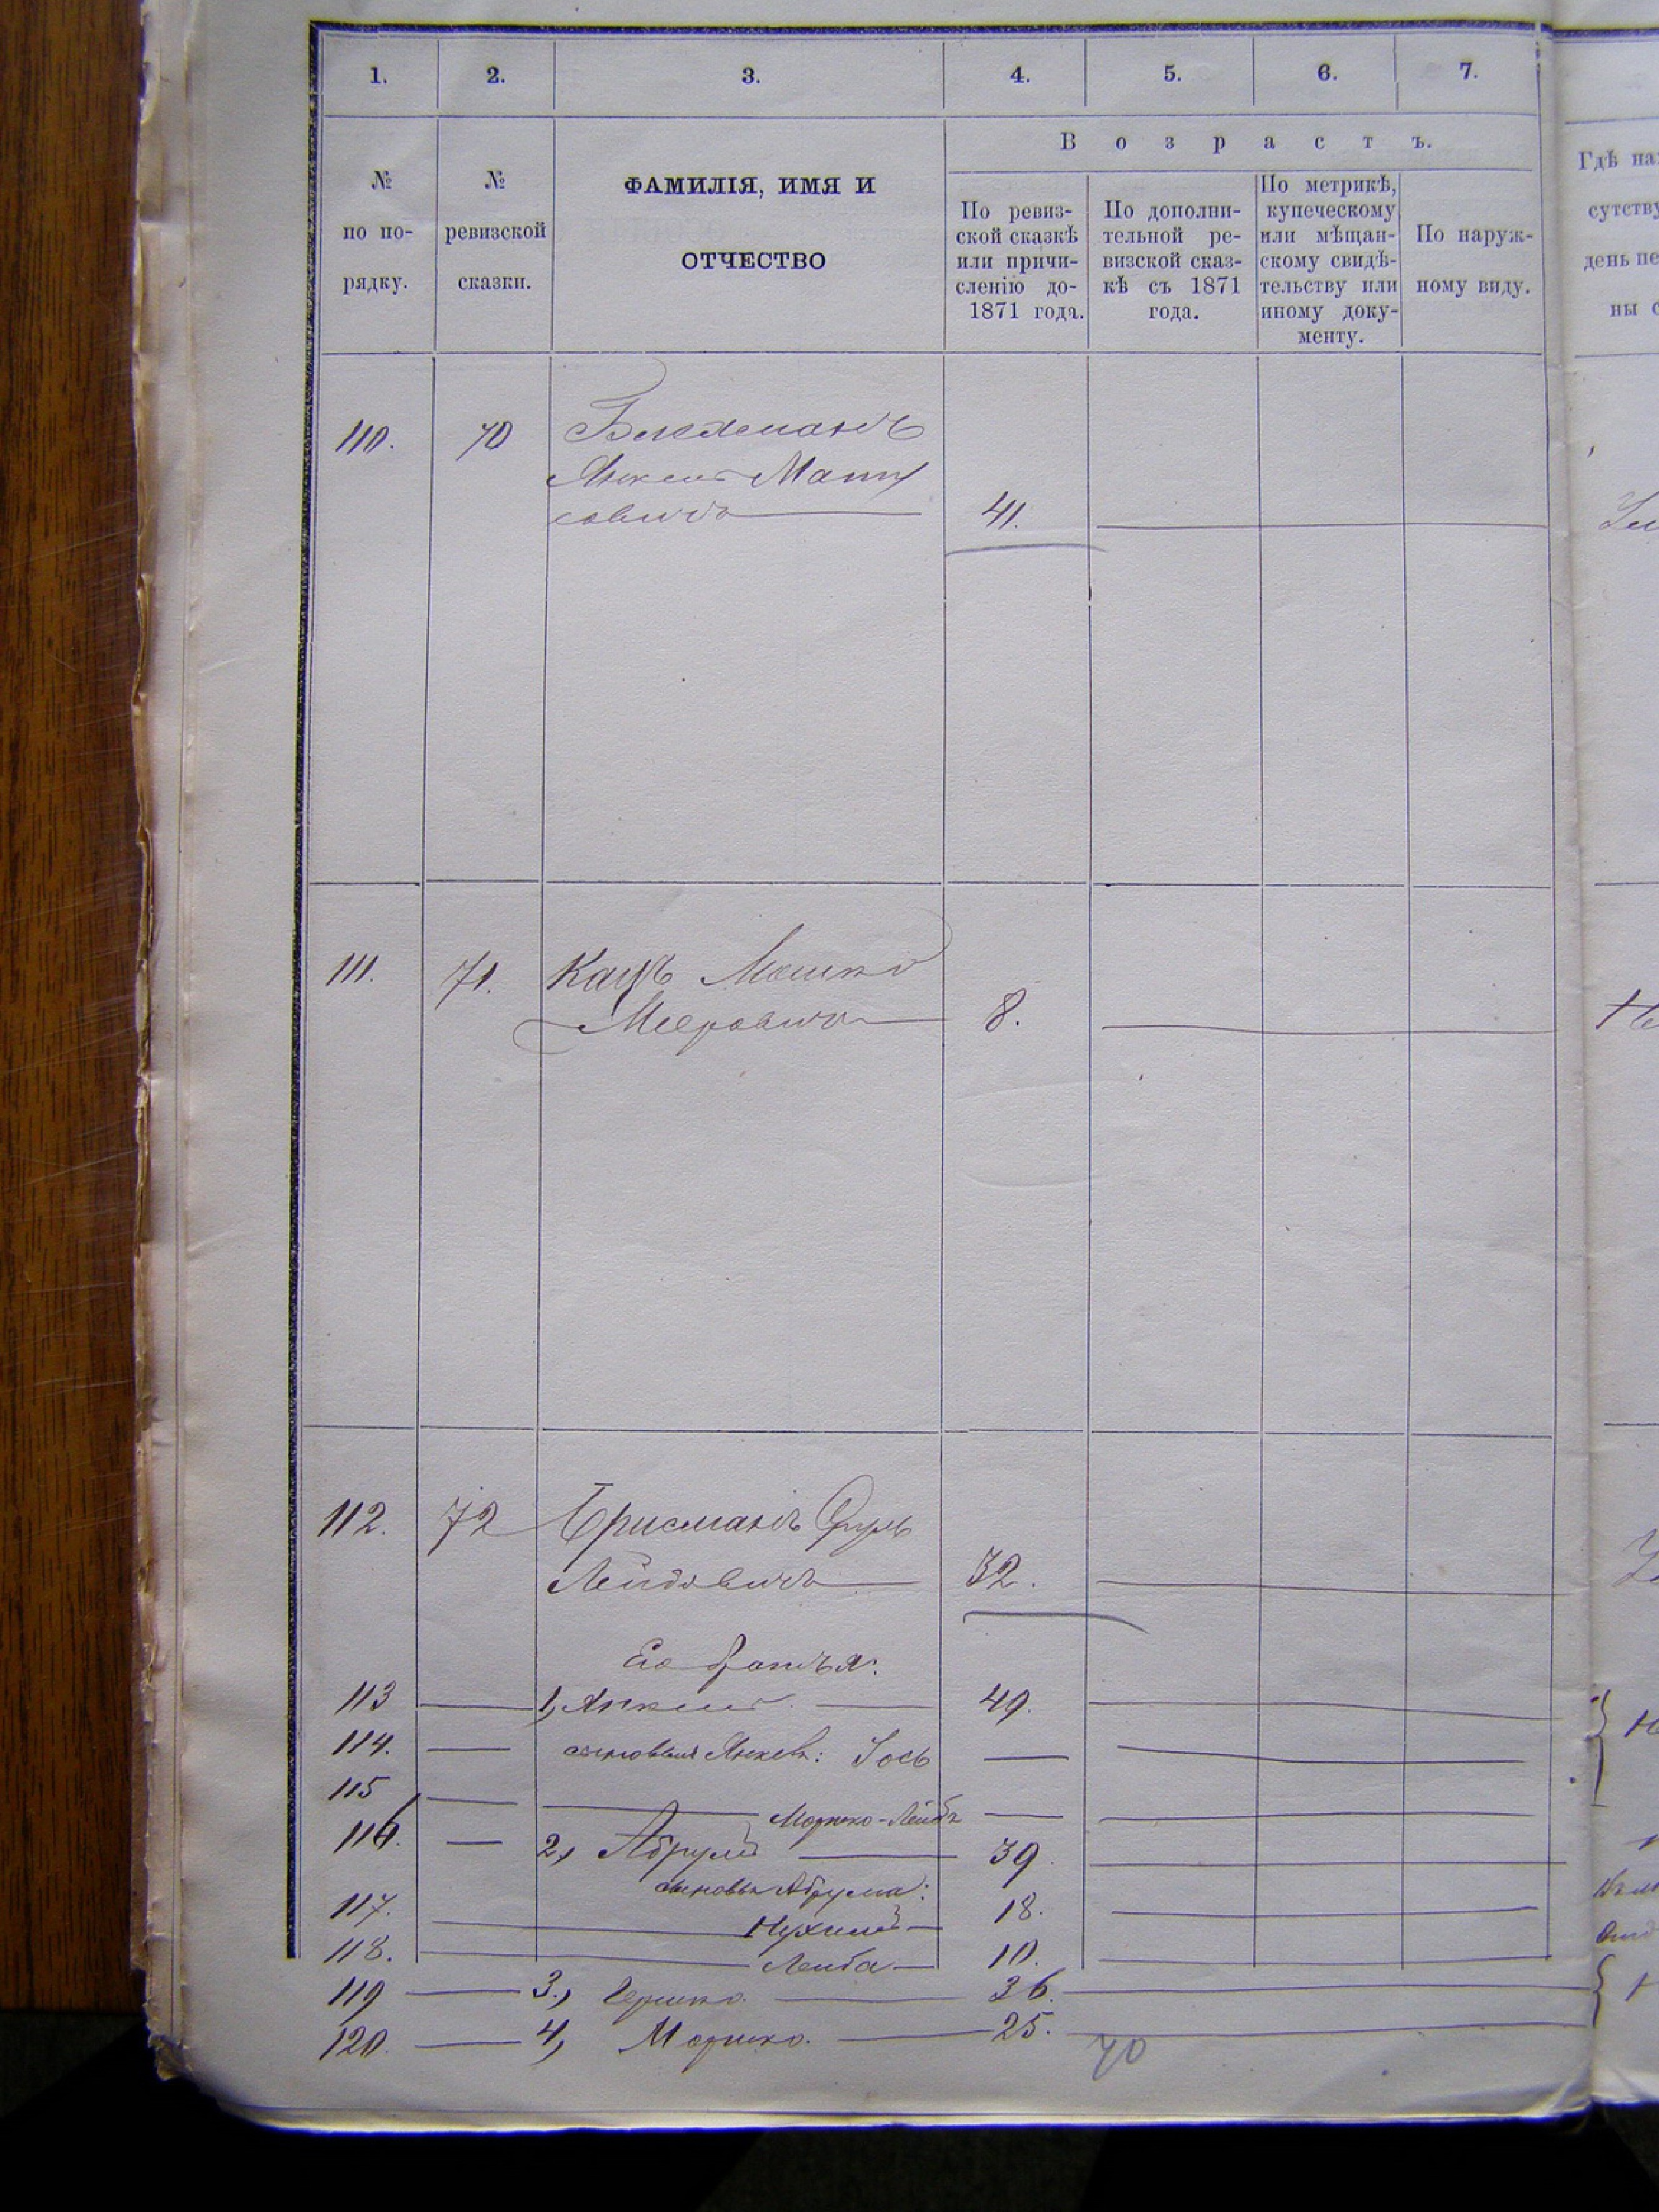 1. 2. 3. 4. 5. 6. 7.
№ по по- рядку.
№ ревизской сказки.
ФАМИЛІЯ, ИМЯ И
ОТЧЕСТВО
В о з р а с т ъ.
По ревиз-
ской сказкѣ
или причи-
сленію до-
1871 года.
По дополни-
тельной ре-
визской сказ-
кѣ съ 1871
года.
По метрикѣ,
купеческому
или мѣщан-
скому свидѣ-
тельству или
иному доку-
менту.
По наруж-
ному виду.
Гдѣ на
сутству
день пе
ны с
110. 70
Янкель Манu
совичъ 41.
111. 71. Кацъ Мошко
Мееровичъ 8.
112. 72 Брисманъ Сруль
Лейбовичъ 32.
Его братья:
113 1, Янкель 49.
114. сыновья Янкеля: Іось
115 Мошко-Лейба
116. 2, Абрумъ 39.
сыновья Абрума:
117. Нухимъ 18.
118. Лейба 10.
119 3, Гершко 36.
120. 4, Мошко. 25.
70